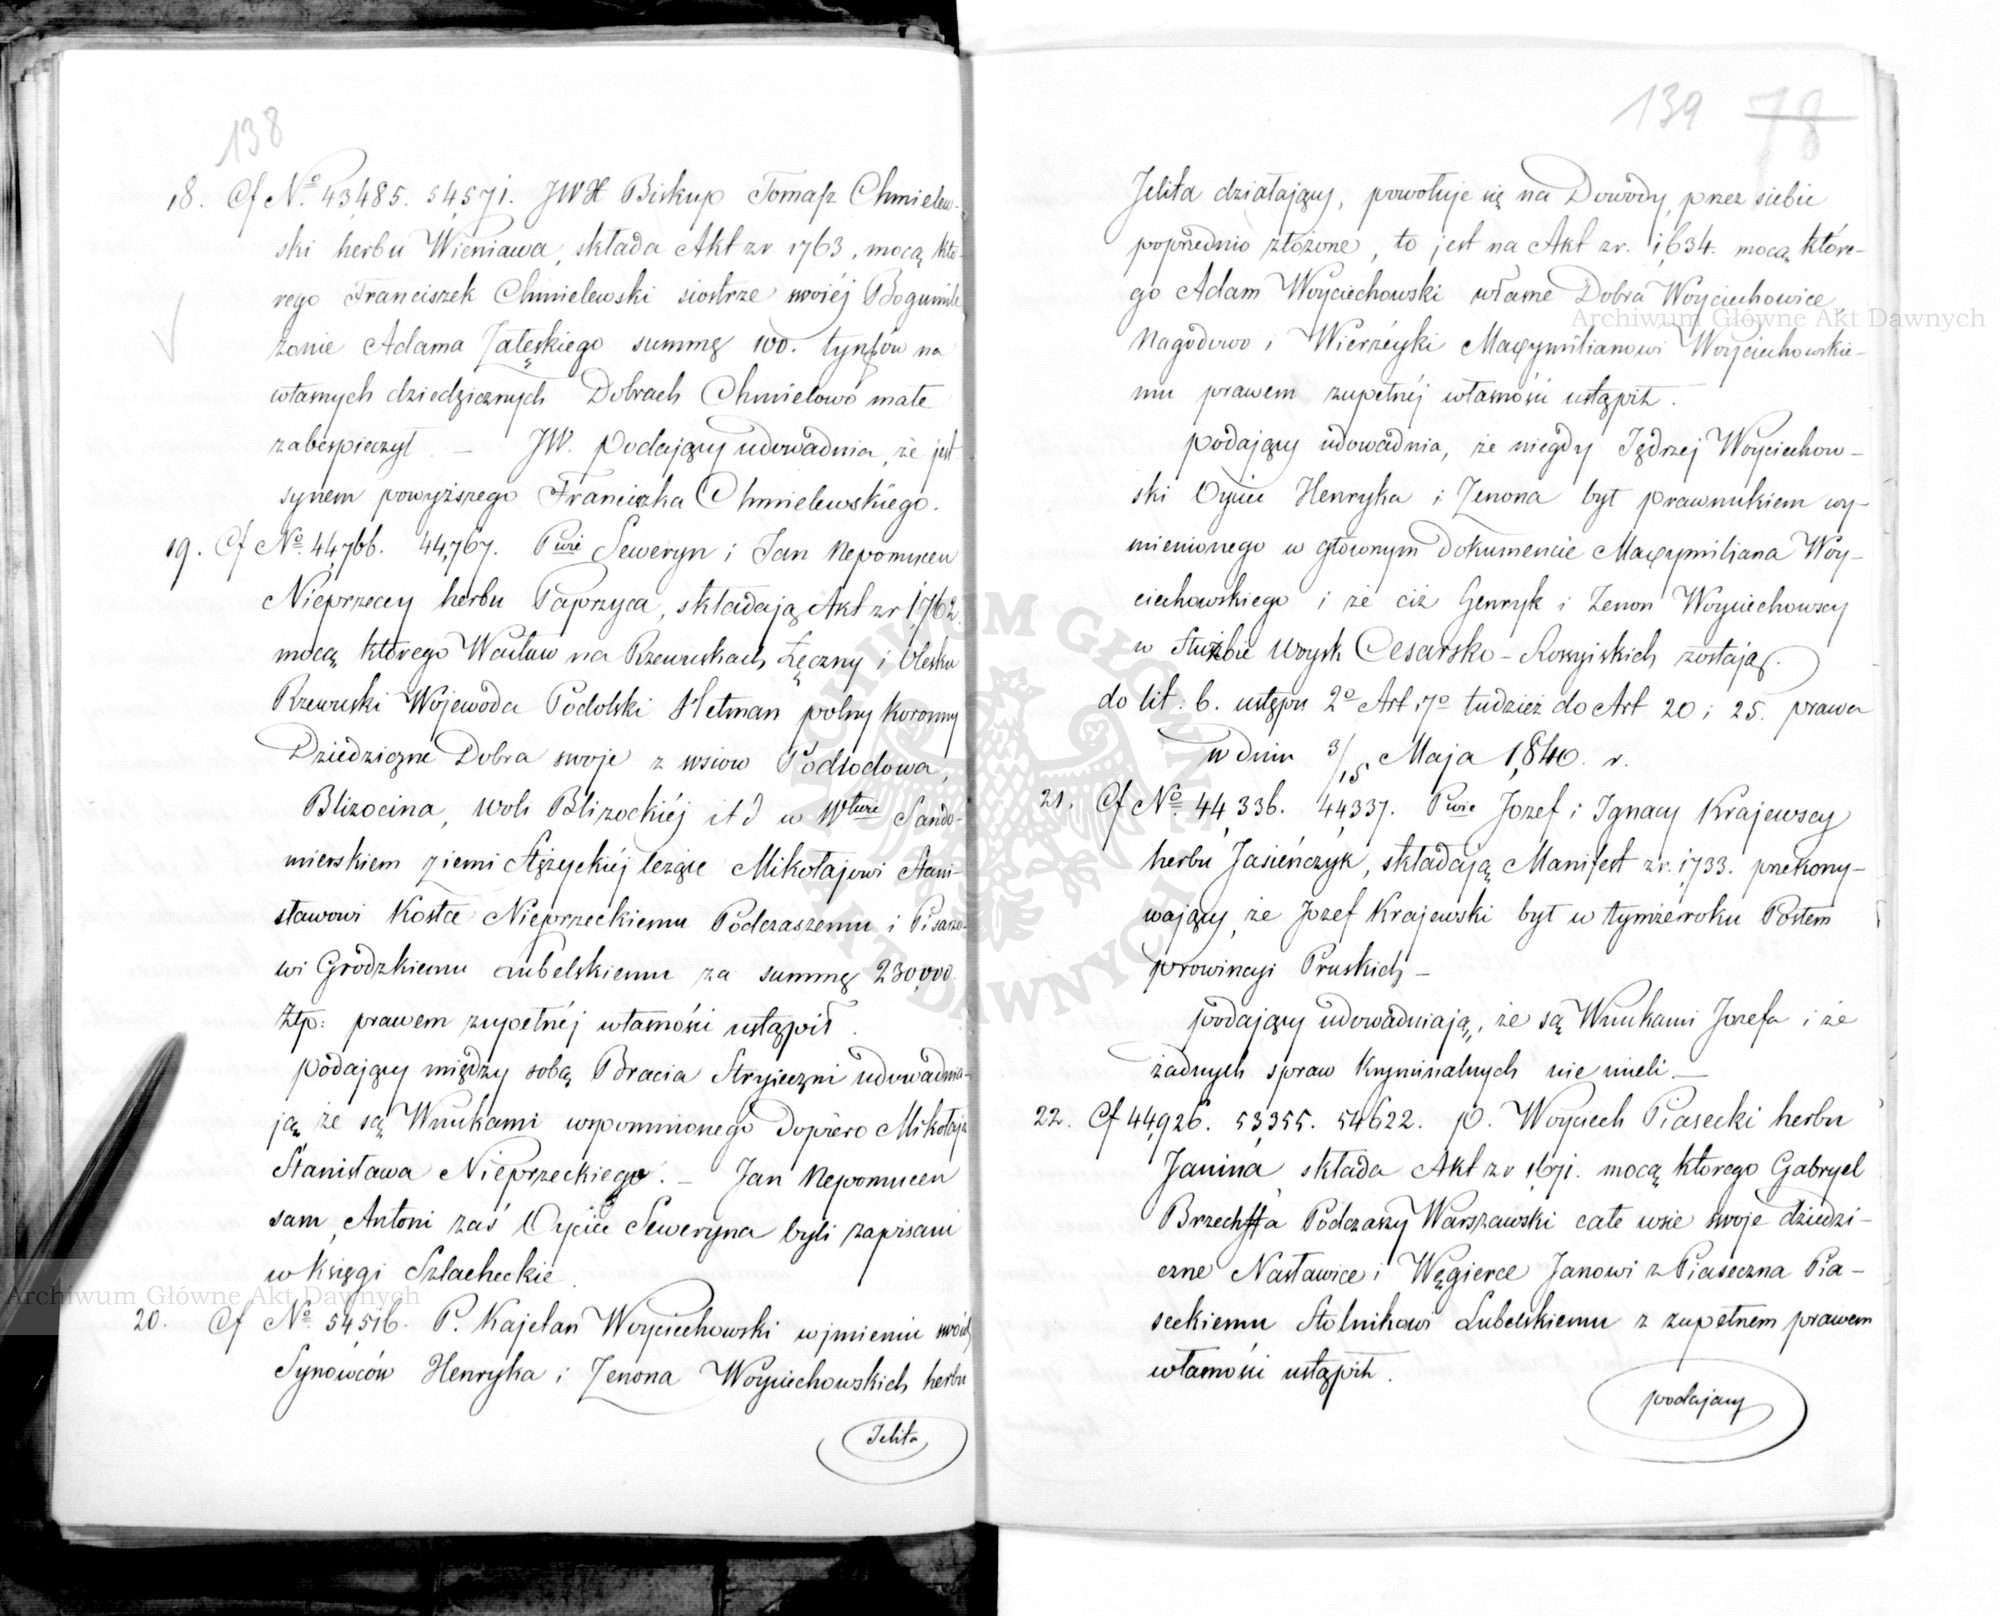 138
18. Cf Nº 43,485. 54,571. JWX Biskup Tomasz Chmielew-
ski herbu Wieniawa, składa Akt z r 1763, mocą któ-
rego Franciszek Chmielewski siostrze swojéj Bogumile
żonie Adama Załęskiego summę 100. tynfów na
własnych dziedzicznych Dobrach Chmielowo małe
zabespieczył. — JW. Podający udowadnia, że jest
synem powyższego Franciszka Chmielewskiego.
19. Cf Nº 44,766. 44,767. Pwie Seweryn i Jan Nepomucen
Nieprzeccy herbu Paprzyca, składają Akt z r 1762.
mocą którego Wacław na Rzewuskach Łęczny i Olesku
Rzewuski Wojewoda Podolski Hetman polny Koronny
Dziedziczne Dobra swoje z wsiow Podlodowa,
Blizocina, woli Blizockiéj itd w Wtwie Sando-
mierskiem ziemi Stężyckiéj leżące Mikołajowi Stani-
sławowi Kostce Nieprzeckiemu Podczaszemu i Pisarzo-
wi Grodzkiemu Lubelskiemu za summę 230,000.
Złp: prawem zupełnéj własności ustąpił.
podający między sobą Bracia Stryieczni udowadnia-
ją, że są Wnukami wspomnionego dopiero Mikołaja
Stanisława Nieprzeckiego. — Jan Nepomucen
sam, Antoni zaś Oyciec Seweryna byli zapisani
w księgi Szlacheckie
20. Cf Nº 54,516. P. Kajetan Woyciechowski w jmieniu swoich
Synowców Henryka i Zenona Woyciechowskich herbu
Jelita
139 78
Jelita działający, powołuje się na Dowody, przez siebie
poprzednio złożone, to jest na Akt z r. 1,634. mocą które-
go Adam Woyciechowski własne Dobra Woyciechowice
Nagodowo i Wierzéyki Maxymilianowi Woyciechowskie-
mu prawem zupełnéj własności ustąpił.
podający udowadnia, że niegdy Jędrzej Woyciechow-
ski Oyciec Henryka i Zenona był prawnukiem wy-
mienionego w głównym dokumencie Maxymiliana Woy-
ciechowskiego i że ciż Henryk i Zenon Woyciechowscy
w Służbie Woysk Cesarsko-Rossyiskich zostają.
do lit: b. ustępu 2º Art 17º tudzież do Art 20 i 25. prawa
w dniu 3/15 Maja 1,840. r.
21. Cf Nº 44,336. 44,337. Pwie Jozef i Ignacy Krajewscy
herbu Jasieńczyk, składają Manifest z r. 1,733. przekony-
wający, że Jozef Krajewski był w tymże roku Posłem
prowincyi Pruskich —
podający udowadniają, że są Wnukami Jozefa i że
żadnych spraw Kryminalnych nie mieli. —
22. Cf 44,926. 53,355. 54622. P. Woyciech Piasecki herbu
Janina składa Akt z r 1671. mocą którego Gabryel
Brzechffa Podczaszy Warszawski całe wsie swoje dziedzi-
czne Nasławice i Węgierce Janowi z Piaseczna Pia-
seckiemu Stolnikowi Lubelskiemu z zupełnem prawem
własności ustąpił.
podający
Archiwum Główne Akt Dawnych
Archiwum Główne Akt Dawnych
ARCHIWUM GŁÓWNE
AKT DAWNYCH